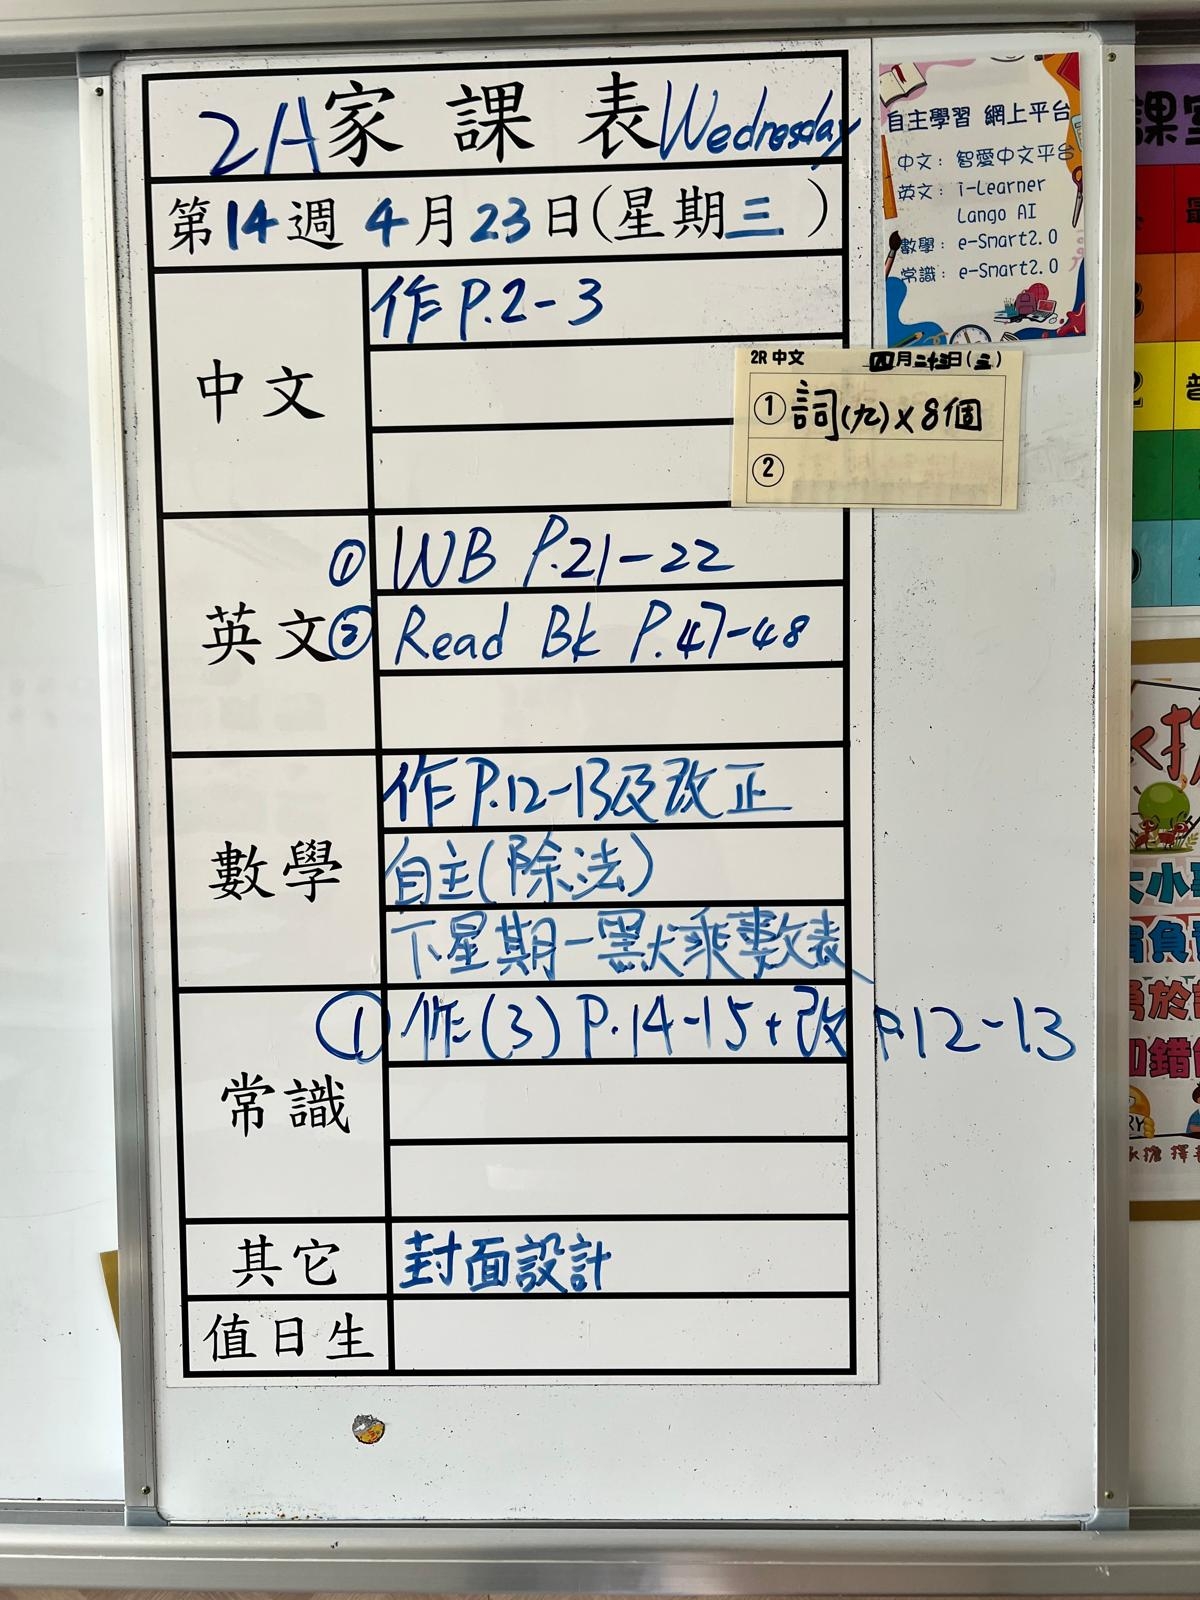 2A家課表Wednesday
第14週 4月23日(星期三)
中文
作 P.2-3
2R 中文 四月二十三日(三)
① 詞(九)x8個
②
英文
① WB P.21-22
② Read Bk P.47-48
數學
作 P.12-13及改正
自主(除法)
下星期一默乘數表
常識
① 作(3) P.14-15+改 P.12-13
其它
封面設計
值日生
自主學習 網上平台
中文：智愛中文平台
英文：i-Learner
Lango AI
數學：e-Smart2.0
常識：e-Smart2.0